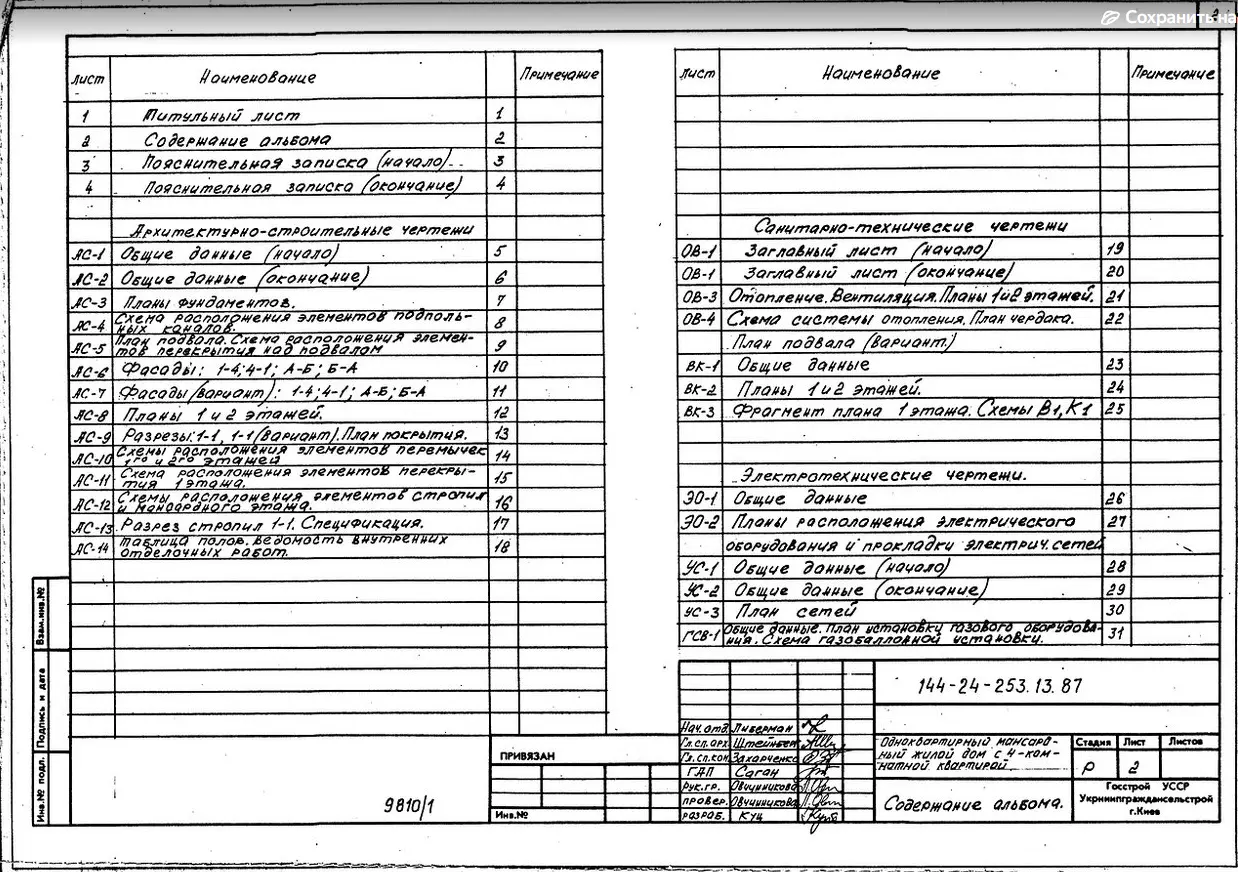 Сохранить на
2
лист Наименование Примечание
1 Титульный лист 1
2 Содержание альбома 2
3 Пояснительная записка (начало) 3
4 Пояснительная записка (окончание) 4
Архитектурно-строительные чертежи
АС-1 Общие данные (начало) 5
АС-2 Общие данные (окончание) 6
АС-3 Планы фундаментов. 7
АС-4 Схема расположения элементов подполь-
ных каналов. 8
АС-5 План подвала. Схема расположения элемен-
тов перекрытия над подвалом 9
АС-6 Фасады: 1-4; 4-1; А-Б; Б-А 10
АС-7 Фасады (вариант): 1-4; 4-1; А-Б; Б-А 11
АС-8 Планы 1 и 2 этажей. 12
АС-9 Разрезы: 1-1, 1-1 (вариант). План покрытия. 13
АС-10 Схемы расположения элементов перемычек
1го и 2го этажей 14
АС-11 Схема расположения элементов перекры-
тия 1 этажа. 15
АС-12 Схемы расположения элементов стропил
и мансардного этажа. 16
АС-13 Разрез стропил 1-1. Спецификация. 17
АС-14 Таблица полов. Ведомость внутренних
отделочных работ. 18
лист Наименование Примечание
Санитарно-технические чертежи
ОВ-1 Заглавный лист (начало) 19
ОВ-1 Заглавный лист (окончание) 20
ОВ-3 Отопление. Вентиляция. Планы 1 и 2 этажей. 21
ОВ-4 Схема системы отопления. План чердака. 22
План подвала (вариант.)
ВК-1 Общие данные 23
ВК-2 Планы 1 и 2 этажей. 24
ВК-3 Фрагмент плана 1 этажа. Схемы В1, К1 25
Электротехнические чертежи.
ЭО-1 Общие данные 26
ЭО-2 Планы расположения электрического 27
оборудования и прокладки электрич. сетей
УС-1 Общие данные (начало) 28
УС-2 Общие данные (окончание) 29
УС-3 План сетей 30
ГСВ-1 Общие данные. План установки газового оборудова-
ния. Схема газобаллонной установки. 31
Взам.инв.№
Подпись и дата
Инв.№ подл.
9810/1
ПРИВЯЗАН
Инв.№
144-24-253.13.87
Нач.отд. Либерман
Гл.сп.арх. Штейнбек
Гл.сп.кон. Захарченко
ГАП Саган
Рук.гр. Овчинникова
провер. Овчинникова
разраб. Куц
Одноквартирный мансард-
ный жилой дом с 4-ком-
натной квартирой
Стадия Лист Листов
Р 2
Содержание альбома.
Госстрой УССР
Укрниипграждансельстрой
г.Киев